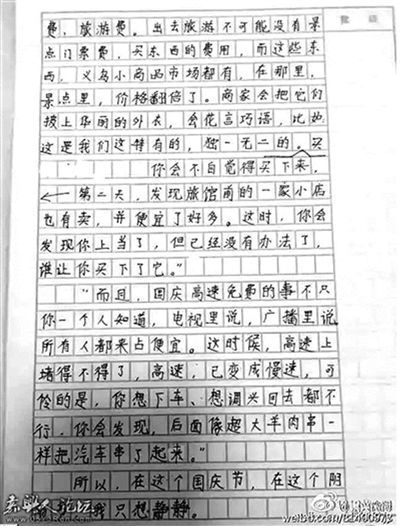 批 语
费，旅游费。出去旅游不可能没有景
点门票费，买东西的费用，而这些东
西，义乌小商品市场都有，在那里，
景点里，价格翻倍了。商家会把它们
披上华丽的外衣，会花言巧语，比如
这是我们这特有的，独一无二的。买
你会不自觉得买下来，
第二天，发现旅馆前的一家小店
也有卖，并便宜了好多。这时，你会
发现你上当了，但已经没有办法了，
谁让你买下了它。"
"而且，国庆高速免费的事不只
你一个人知道，电视里说，广播里说
所有人都来占便宜。这时候，高速上
堵得不得了，高速，已变成慢速，可
怜的是，你想下车、想调头回去都不
行，你会发现，后面像超大羊肉串一
样把汽车串了起来。"
所以，在这个国庆节，在这个阴
我只想静静。